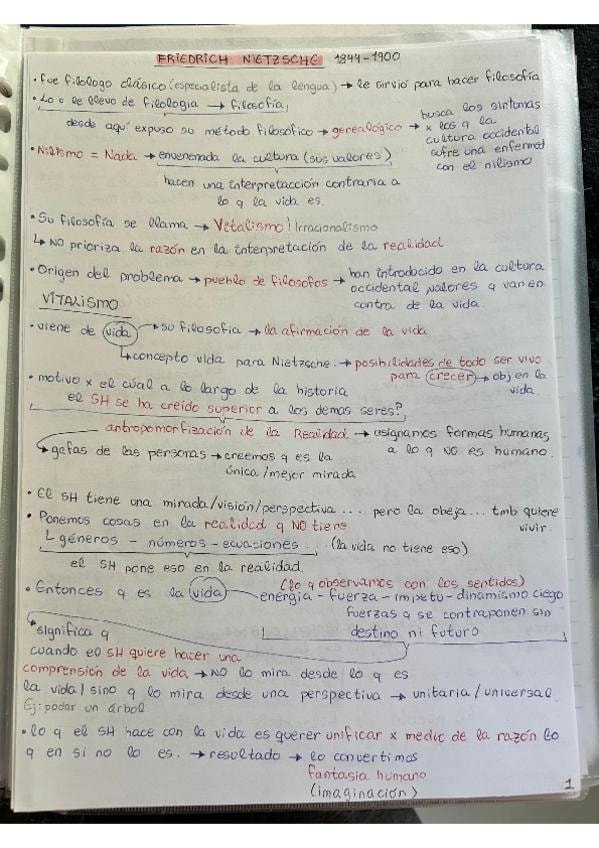 FRIEDRICH NIETZSCHE 1844-1900
• Fue filologo clásico (especialista de la lengua) → le sirvió para hacer filosofía
• Lo q le llevo de filologia → filosofía,
desde aquí expuso su método filosófico → genealógico → busca los sintomas
x los q la
cultura occidental
sufre una enfermet
con el nilismo
• Nilismo = Nada → envenenada la cultura (sus valores)
hacen una interpretacción contraria a
lo q la vida es.
• Su filosofía se llama → Vitalismo / Irracionalismo
↳ NO prioriza la razón en la interpretación de la realidad
• Origen del problema → pueblo de filosofos → han introducido en la cultura
occidental valores q van en
contra de la vida.
VITALISMO
• viene de vida → su filosofia → la afirmación de la vida
↳ concepto vida para Nietzsche: → posibilidades de todo ser vivo
para crecer → obj en la
vida.
• motivo x el cual a lo largo de la historia
el SH se ha creído superior a los demas seres?
antropomorfización de la Realidad → asignamos formas humanas
a lo q NO es humano.
→ gafas de las personas → creemos q es la
única/mejor mirada
• El SH tiene una mirada/visión/perspectiva... pero la obeja... tmb quiere
vivir.
• Ponemos cosas en la realidad q NO tiene
↳ géneros - números - ecuaciones... (la vida no tiene eso)
el SH pone eso en la realidad
• Entonces q es la vida (lo q observamos con los sentidos)
energia - fuerza - impetu - dinamismo ciego
fuerzas q se contraponen sin
destino ni futuro
significa q
cuando el SH quiere hacer una
comprensión de la vida → NO lo mira desde lo q es
la vida / sino q lo mira desde una perspectiva → unitaria / universal.
Ej: podar un árbol
• lo q el SH hace con la vida es querer unificar x medio de la razón lo
q en si no lo es. → resultado → lo convertimos
fantasia humano
(imaginación)
1